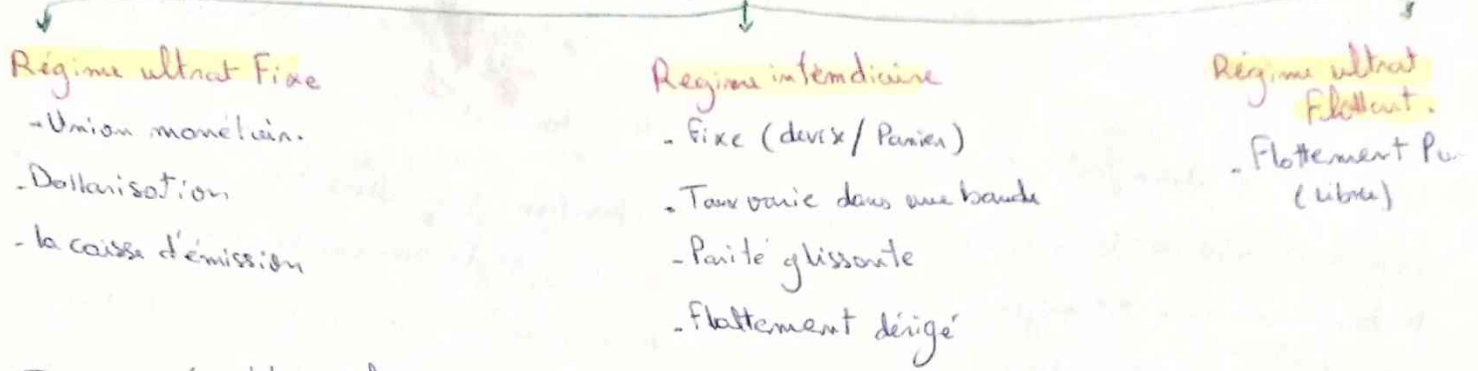 Régime ultrat Fixe
- Union monétair.
- Dollarisation
- la caisse d'émission
Regime intemdiaire
- Fixe (devise / Panier)
- Taux varie dans une bande
- Parité glissante
- Flottement dérigé
Régime ultrat
Flottant.
- Flottement Pu
(libre)